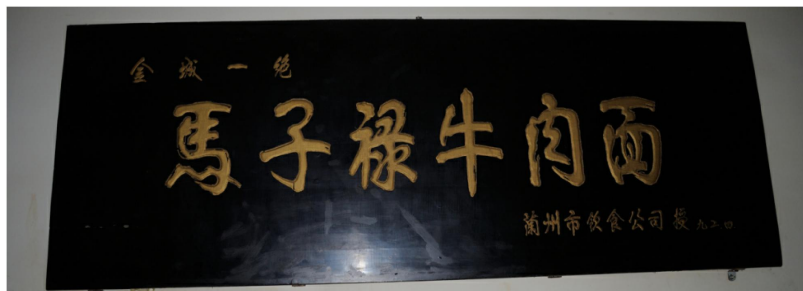 金城一绝
馬子禄牛肉面
蘭州市飲食公司 授 九二.四